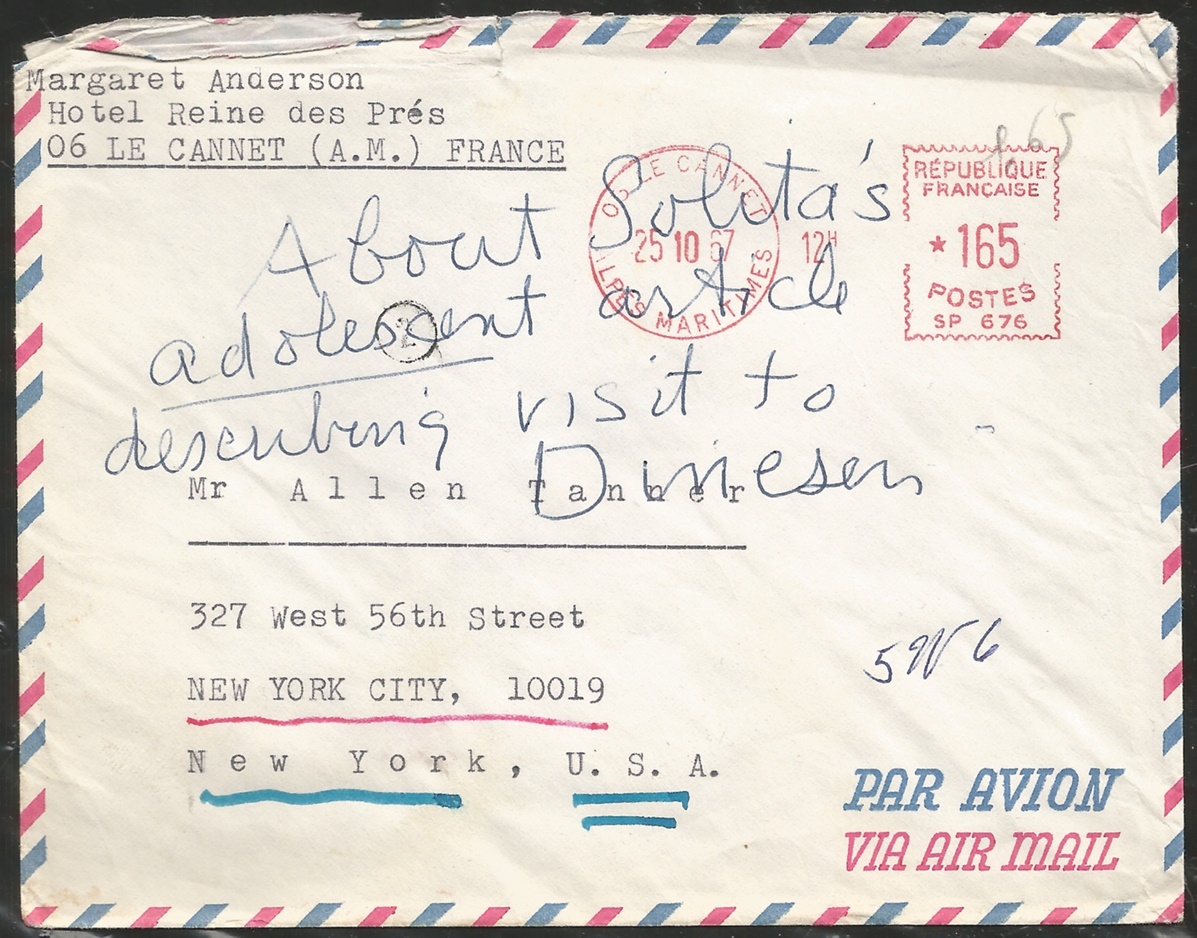 Margaret Anderson
Hotel Reine des Prés
06 LE CANNET (A.M.) FRANCE
1,65
RÉPUBLIQUE
FRANÇAISE
* 165
POSTES
SP 676
06 LE CANNET
25 10 67
12H
ALPES MARITIMES
2
About Solita's
adolescent article
describing visit to
Dinesen
Mr Allen Tanner
327 West 56th Street
NEW YORK CITY, 10019
New York, U. S. A.
PAR AVION
VIA AIR MAIL